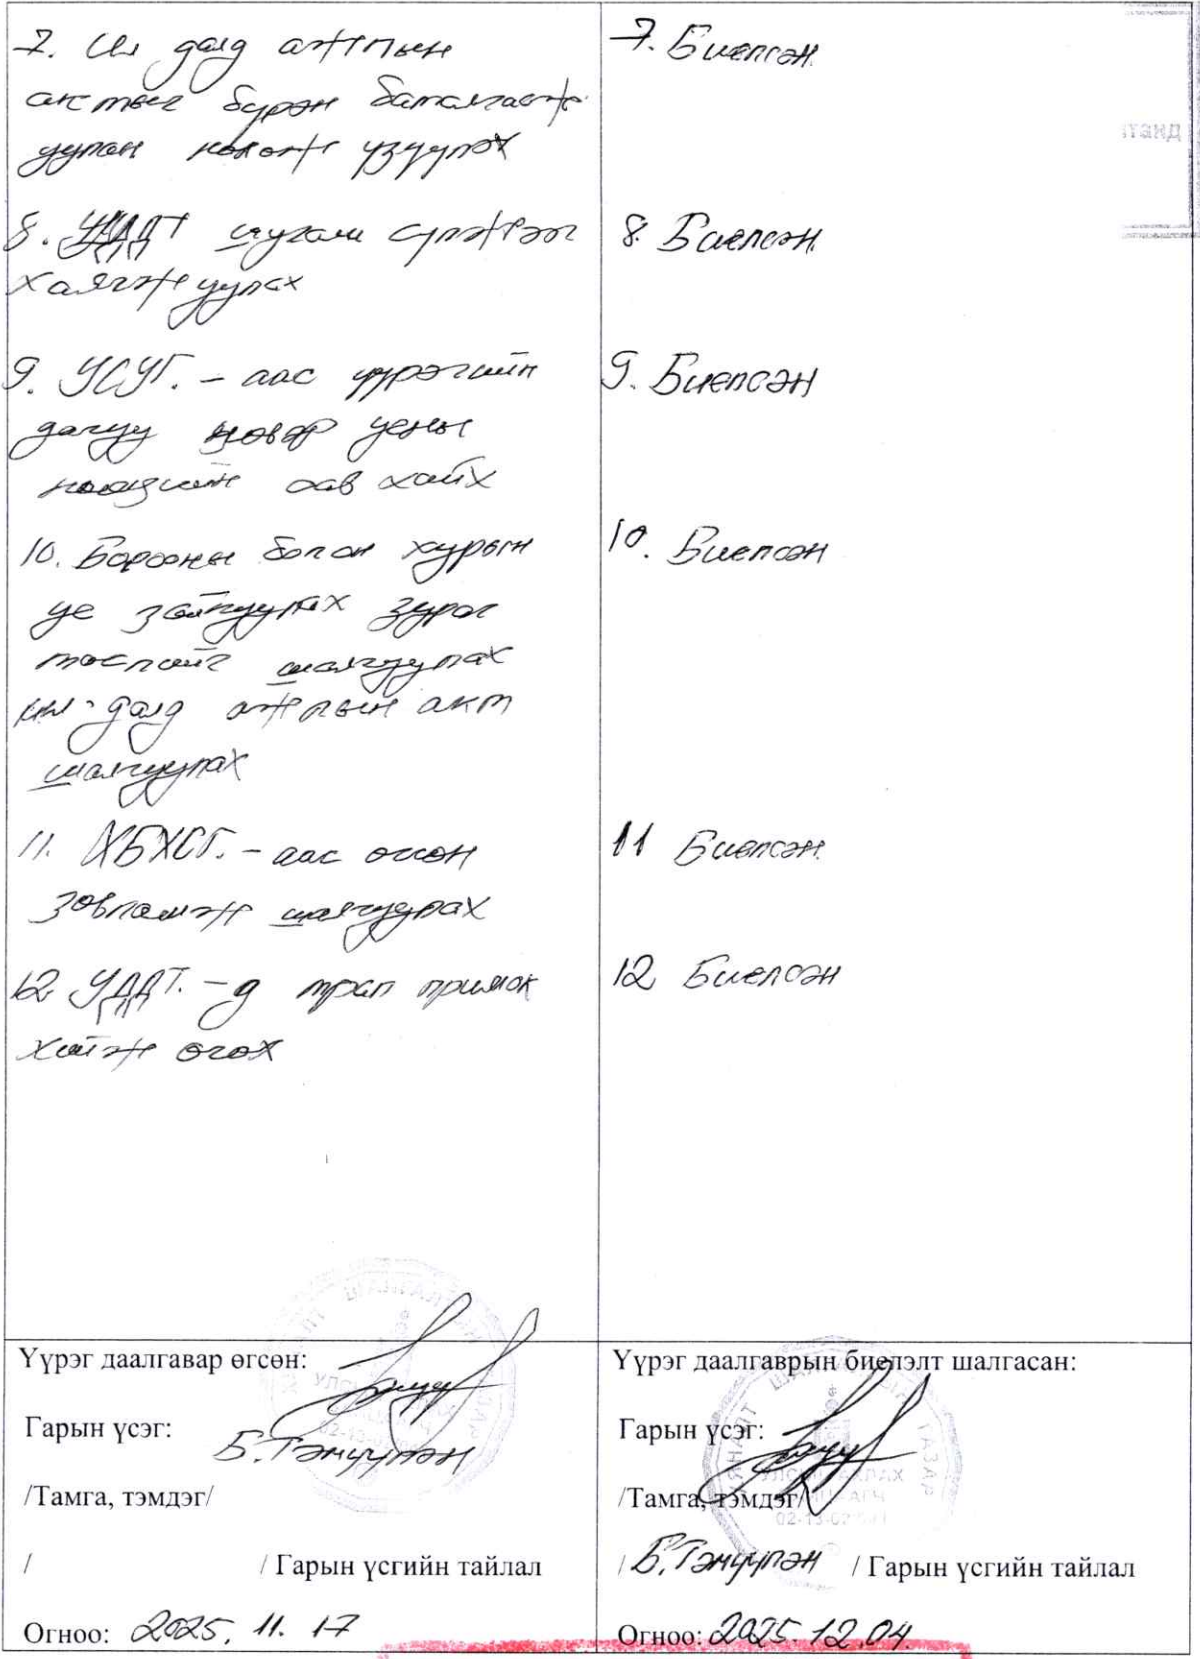 7. Ил далд ажлын
актыг бүрэн баталгаажуу
уулан нөхөж үзүүлэх
8. УДДТ шугам сүлжээг
хаягжуулах
9. УСУГ. - аас үүрэгийн
дагуу цэвэр усны
нөөцийн сав хийх
10. Борооны болон хурын
ус зайлуулах зураг
төслийг шалгуулах
ил далд ажлын акт
шалгуулах
11. ХБХСГ. - аас өгсөн
зөвлөмж шалгуулах
12 УДДТ. - д трап приямок
хийж өгөх
7. Биелсэн.
8. Биелсэн.
9. Биелсэн
10. Биелсэн
11 Биелсэн.
12 Биелсэн
Үүрэг даалгавар өгсөн:
Гарын үсэг:
Б. Тэмүүлэн
/Тамга, тэмдэг/
/ / Гарын үсгийн тайлал
Огноо: 2025. 11. 17
Үүрэг даалгаврын биелэлт шалгасан:
Гарын үсэг:
/Тамга, тэмдэг/
/ Б. Тэмүүлэн / Гарын үсгийн тайлал
Огноо: 2025. 12. 04